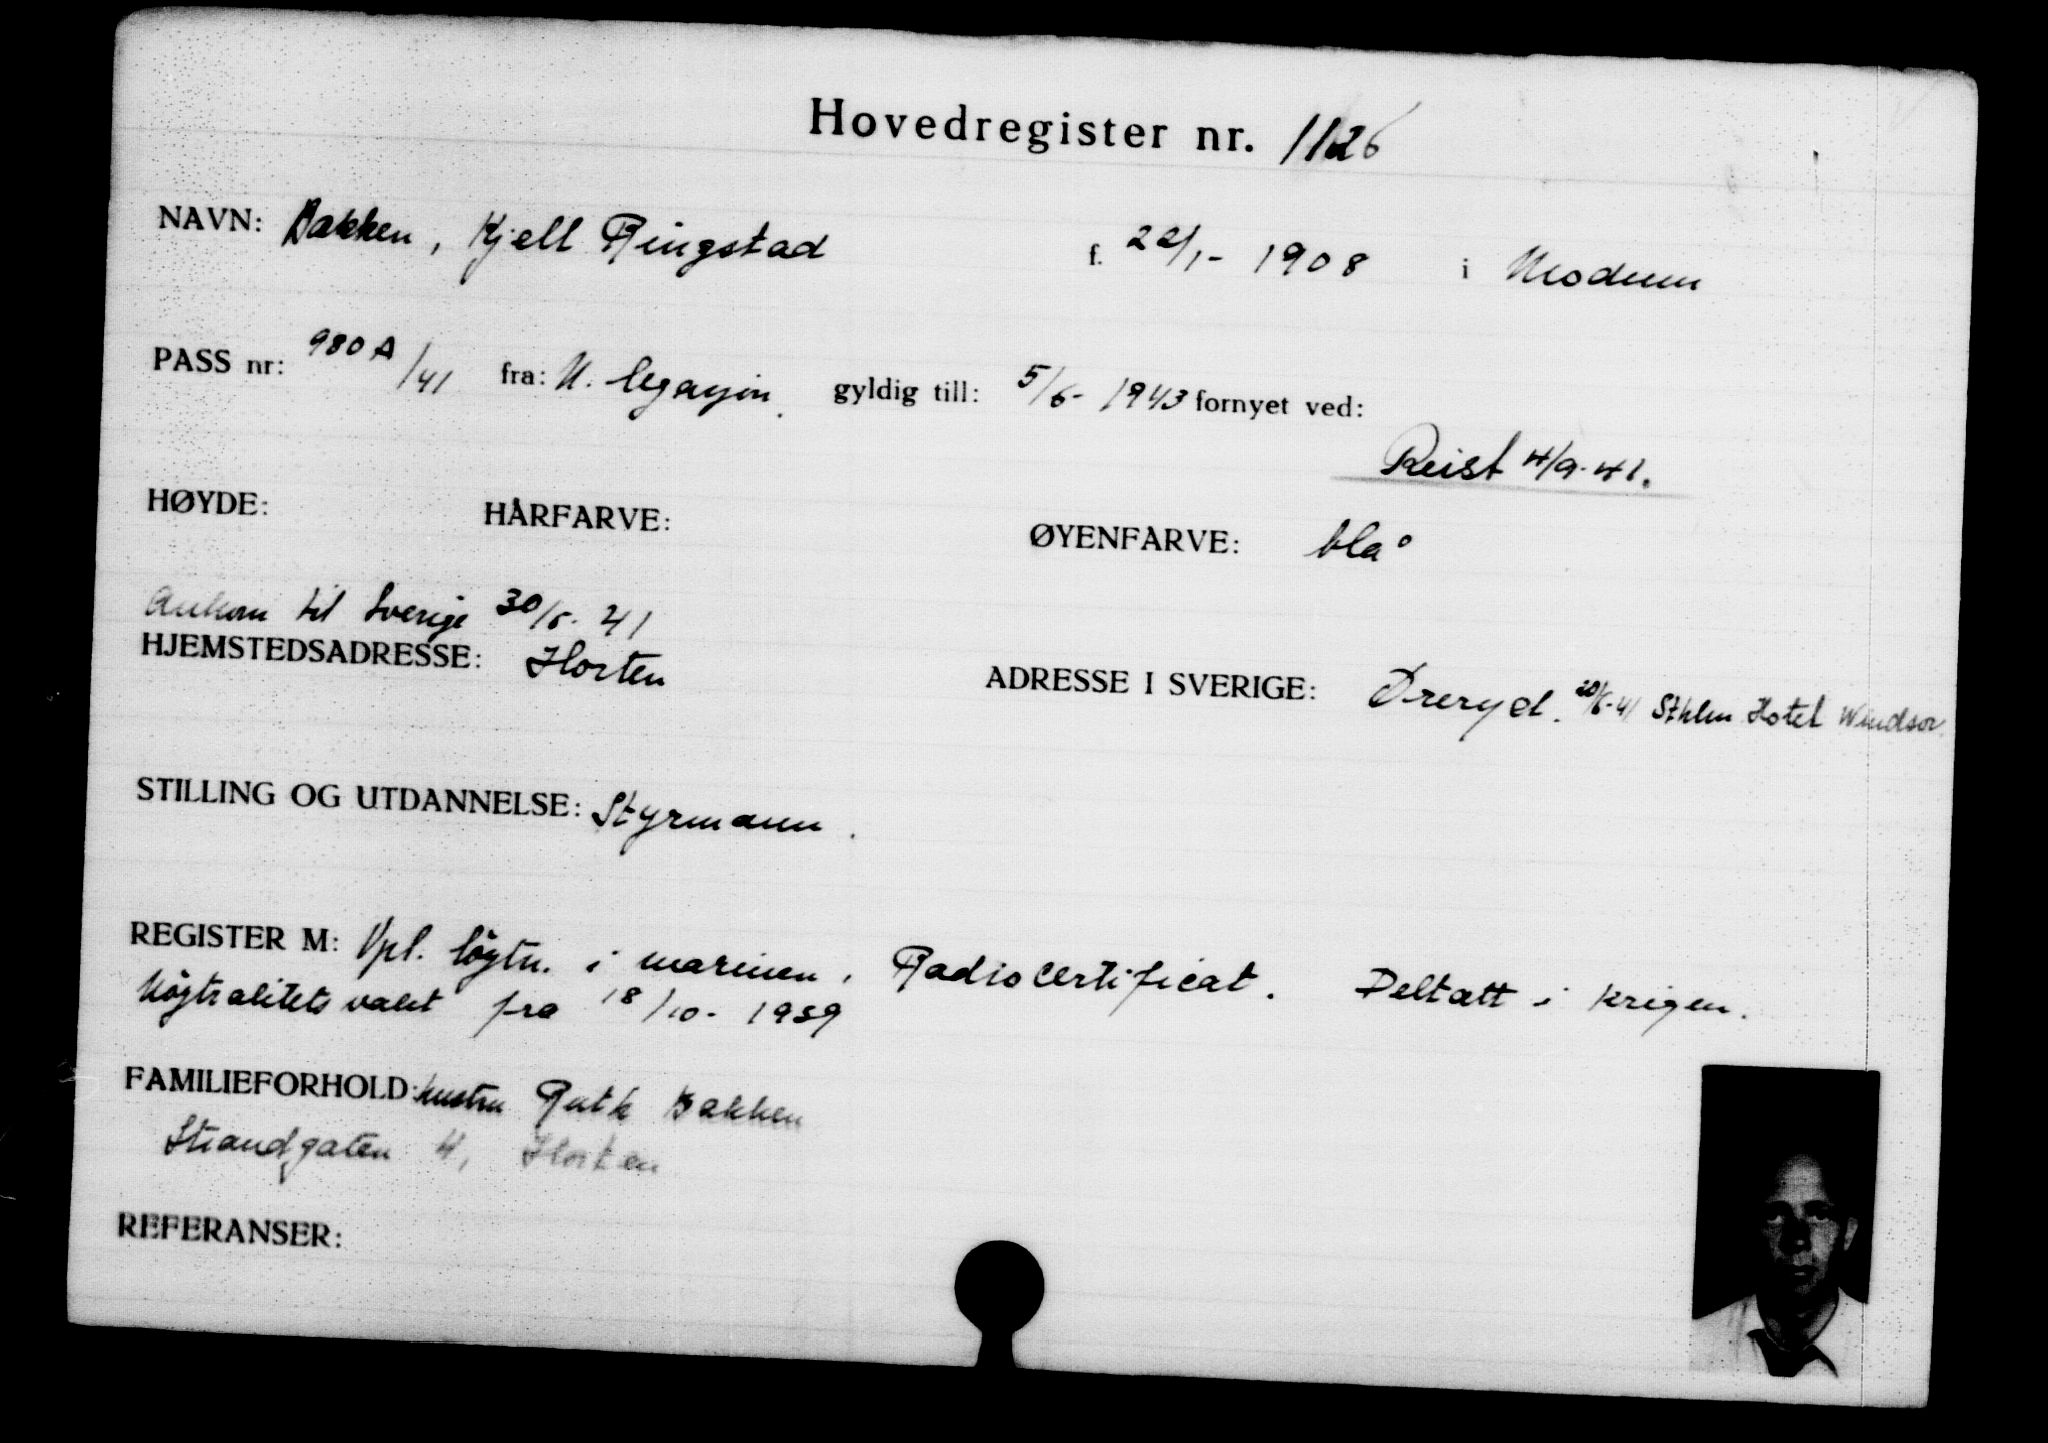 Hovedregister nr. 1126
NAVN: Bakken, Kjell Ringstad f. 22/1- 1908 i Modum
PASS nr: 980A/41 fra: N. legasjon. gyldig till: 5/6- 1943 fornyet ved:
Reist 4/9-41.
HØYDE: HÅRFARVE: ØYENFARVE: blå
Ankom til Sverige 30/5-41
HJEMSTEDSADRESSE: Horten ADRESSE I SVERIGE: Øreryd. 20/6-41 Sthlm Hotel Windsor.
STILLING OG UTDANNELSE: Styrmann.
REGISTER M: Vpl. löytn. i marinen. Radiocertificat. Deltatt i krigen.
Nöytralitetsvakt fra 18/10- 1939
FAMILIEFORHOLD: hustru Ruth Bakken
Strandgaten 4, Horten
REFERANSER: